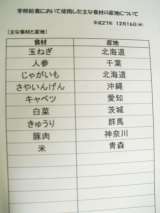 学校給食において使用した主な食材の産地について
平成27年 12月16日(水)
(主な食材と産地)
食材 産地
玉ねぎ 北海道
人参 千葉
じゃがいも 北海道
さやいんげん 沖縄
キャベツ 愛知
白菜 茨城
きゅうり 群馬
豚肉 神奈川
米 青森